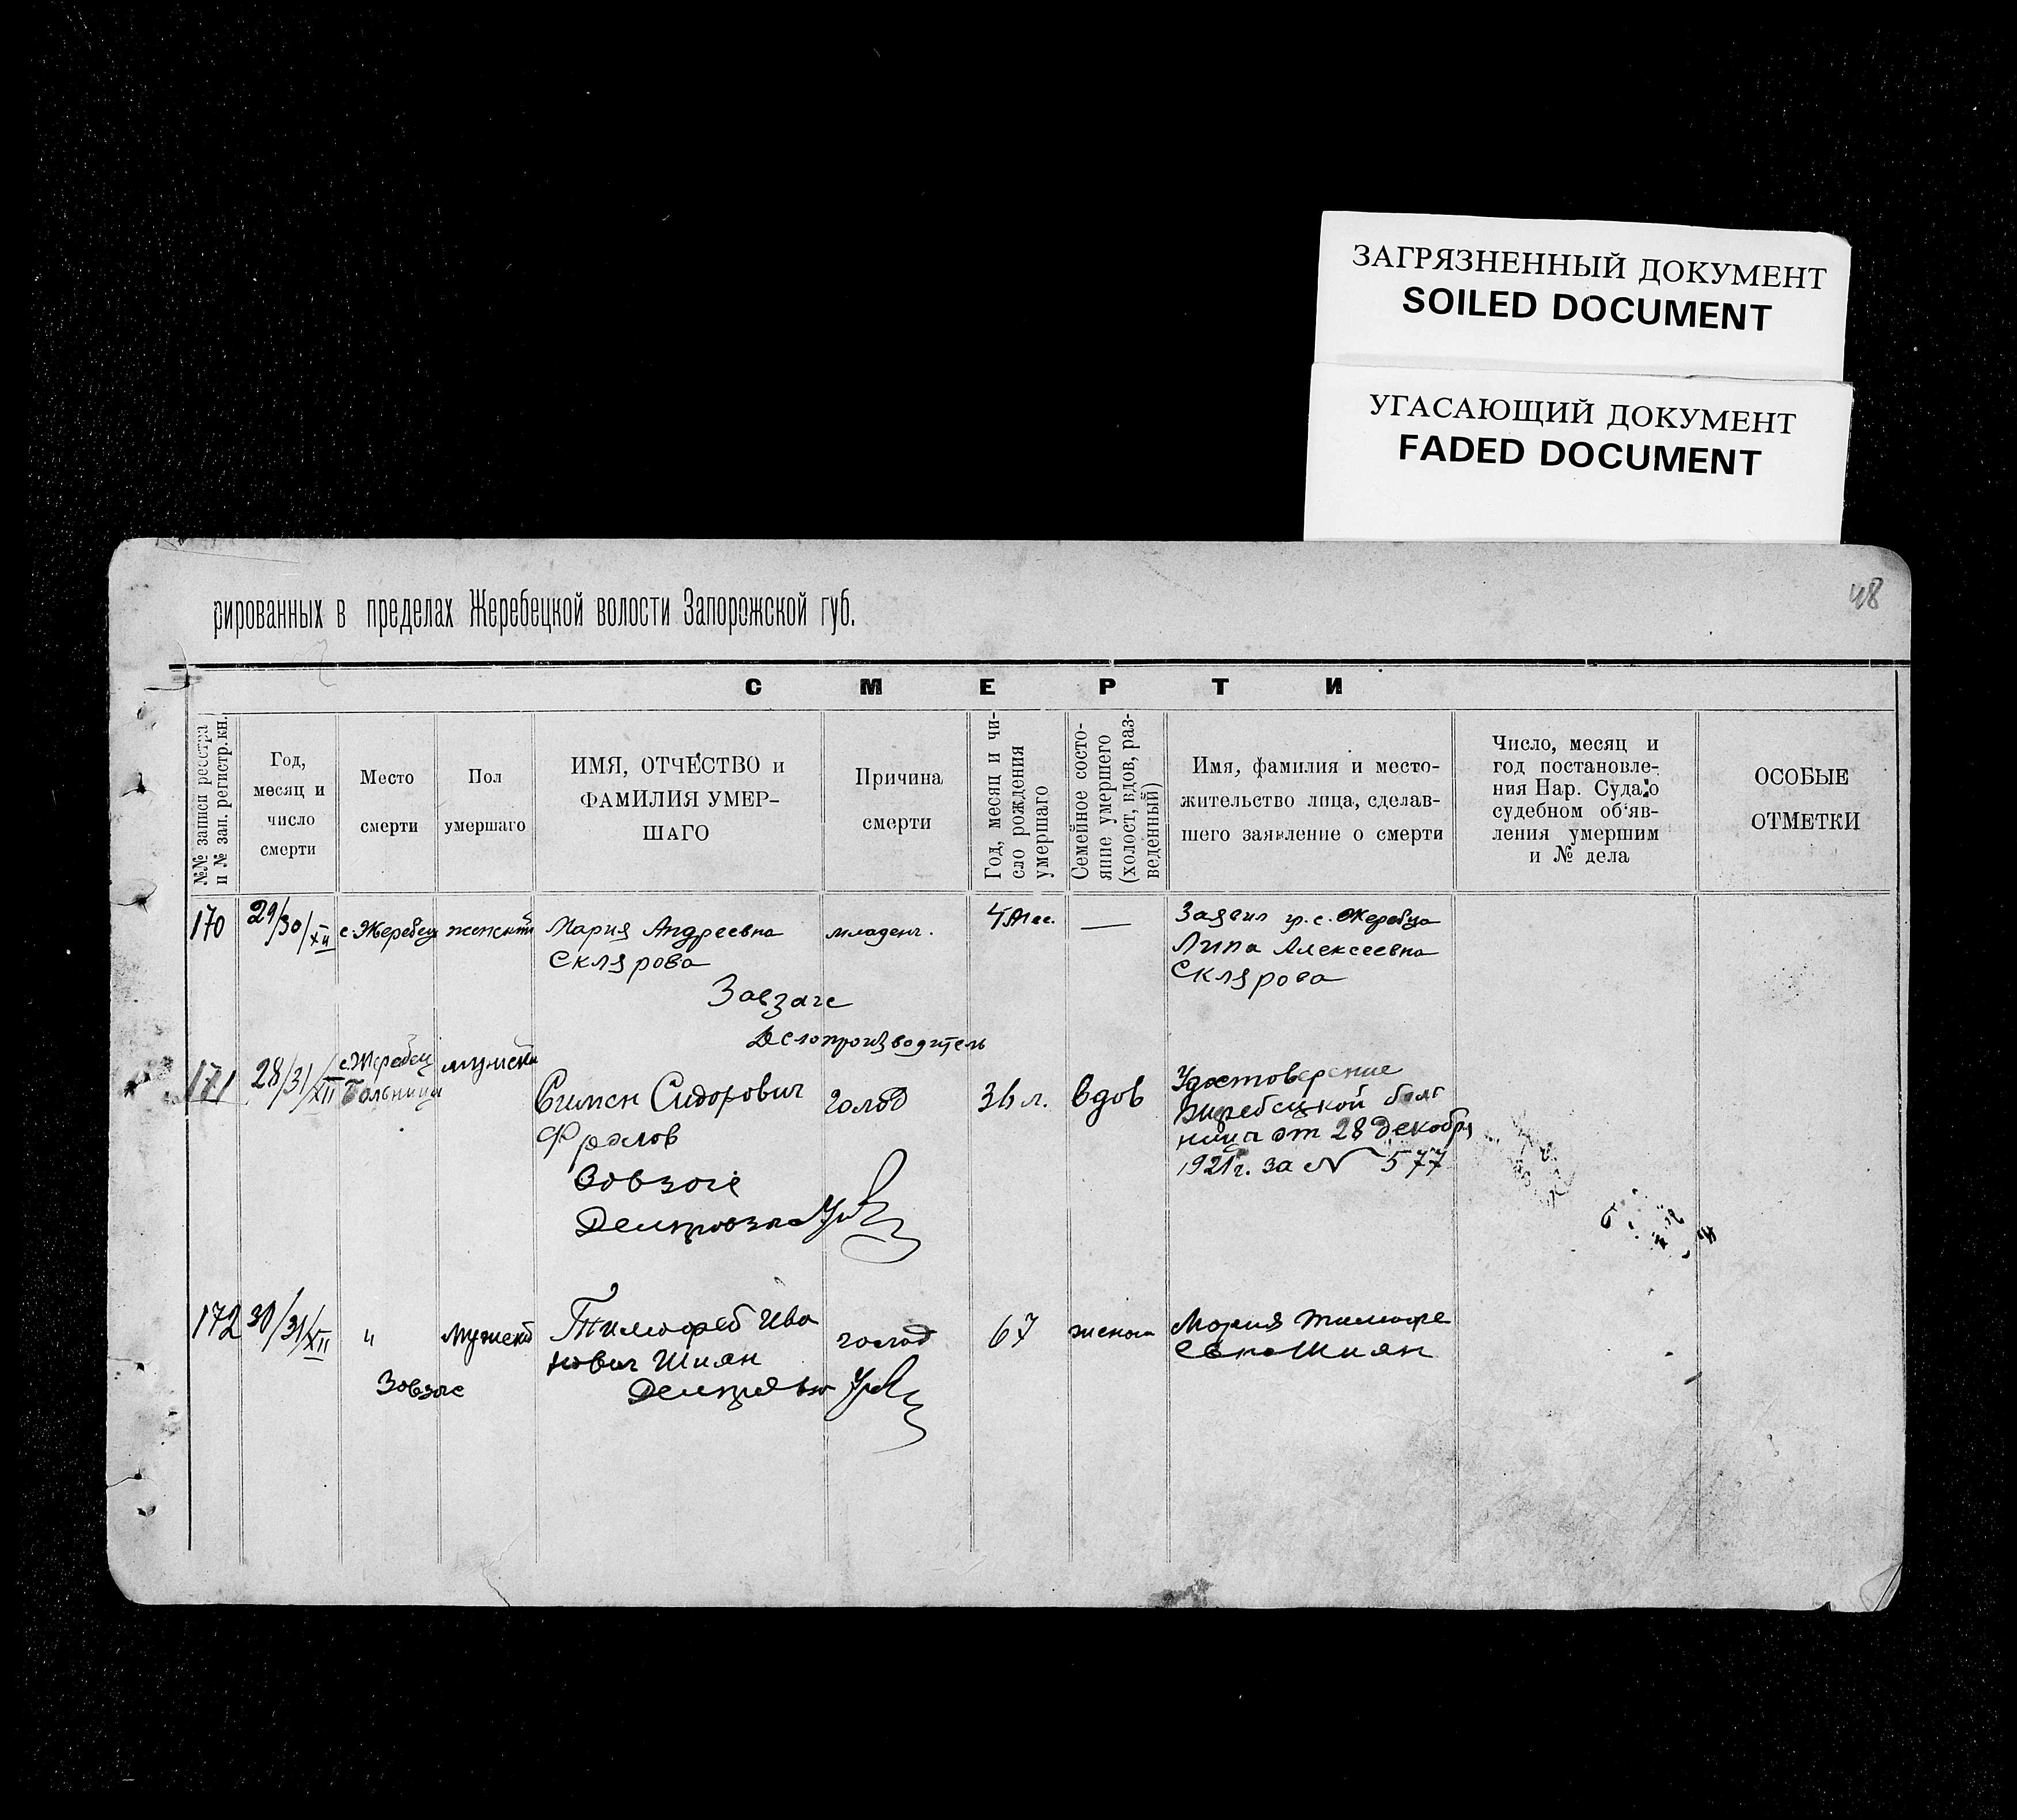 ЗАГРЯЗНЕННЫЙ ДОКУМЕНТ
SOILED DOCUMENT
УГАСАЮЩИЙ ДОКУМЕНТ
FADED DOCUMENT
48
рированных в пределах Жеребецкой волости Запорожской губ.
СМЕРТИ
№№ записи реестра
и № зап. регистр. кн.
Год,
месяц и
число
смерти
Место
смерти
Пол
умершаго
ИМЯ, ОТЧЕСТВО и
ФАМИЛИЯ УМЕР-
ШАГО
Причина
смерти
Год, месяц и чи-
сло рождения
умершаго
Семейное состо-
яние умершего
(холост, вдов, раз-
веденный)
Имя, фамилия и место-
жительство лица, сделав-
шего заявление о смерти
Число, месяц и
год постановле-
ния Нар. Суда о
судебном об'яв-
ления умершим
и № дела
ОСОБЫЕ
ОТМЕТКИ
170
29/30/XII
с. Жеребец
женский
Мария Андреевна
Склярова
младенч.
4 мес.
—
Заявил гр. с. Жеребца
Алексеевна
Склярова
Завзагс
Делопроизводитель
171
28/31/XII
с. Жеребец
Больница
мужски
Сидорович
Фролов
голод
36 л.
вдов
Удостоверение
Жеребецкой бол
ница от 28 Декабря
1921 г. за № 577
Завзагс
172
30/31/XII
"
Мужской
Тимофей Ива
нович Шиян
голод
67
женат
Мария Тимофе
евна Шиян
Завзагс